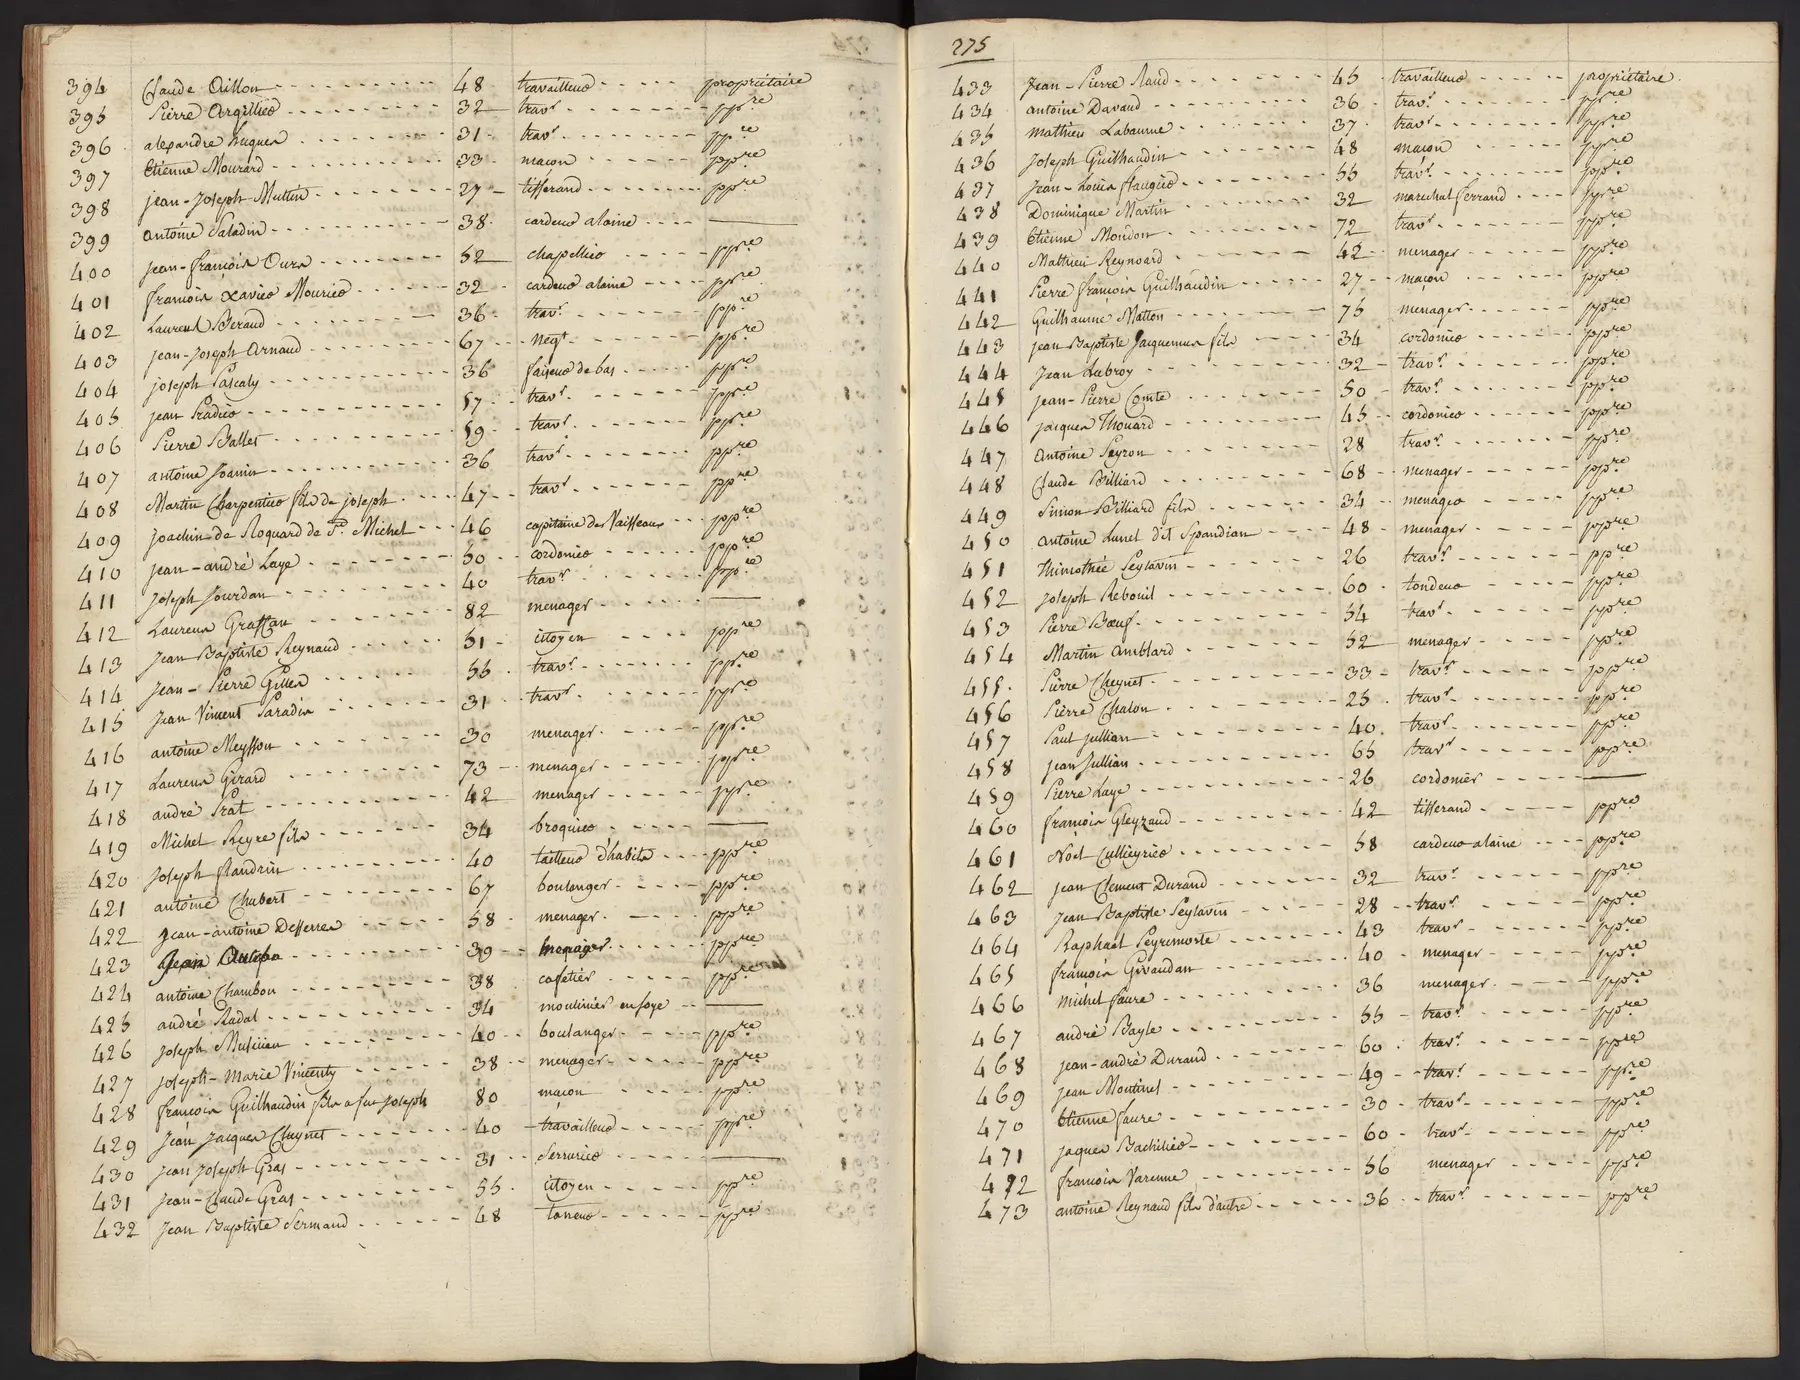 394 Claude Aillon 48 travailleur propriétaire
395 Pierre Argillier 32 travr. ppre
396 alexandre hugues 31 travr. ppre
397 Etienne Mourard 33 maçon ppre
398 jean-Joseph Muttin 27 tisserand ppre
399 antoine Saladin 38 cardeur a laine
400 jean-françois Ours 52 chapellier ppre
401 françois Xavier Mourier 32 cardeur a laine ppre
402 Laurent Beraud 36 travr. ppre
403 jean-Joseph Arnaud 67 negt. ppre
404 joseph Pascaly 36 faiseur de bas ppre
405 jean Pradier 57 travr. ppre
406 Pierre Ballet 59 travr. ppre
407 antoine Joanin 36 travr. ppre
408 Martin Charpentier fils de joseph 47 travr. ppre
409 joachin de Roquard de St. Michel 46 capitaine des Vaisseaux ppre
410 jean-andré Laye 50 cordonier ppre
411 Joseph Jourdan 40 travr. ppre
412 Laurens 82 menager
413 Jean Baptiste Reynaud 51 citoyen ppre
414 Jean-Pierre Gilles 55 travr. ppre
415 Jean Vincent Paradis 31 travr. ppre
416 antoine Meysson 30 menager ppre
417 Laurens Girard 73 menager ppre
418 andré Prat 42 menager ppre
419 Michel Reyre fils 34 broquier
420 Joseph flandrin 40 tailleur d'habits ppre
421 antoine Chabert 67 boulanger ppre
422 Jean-antoine Desserres 58 menager ppre
423 Jean 39 menager ppre
424 antoine Chambon 38 cafetier ppre
425 andré Radal 34 moulinier en soye
426 Joseph 40 boulanger ppre
427 Joseph-Marie Vincenty 38 menager ppre
428 françois Guilhaudin fils a feu joseph 80 maçon ppre
429 Jean Jacques Cheynet 40 travailleur ppre
430 Jean Joseph Gras 31 Serrurier
431 Jean-Claude Gras 55 citoyen ppre
432 Jean Baptiste Sermand 48 taneur ppre
275
433 Jean-Pierre Raud 45 travailleur propriétaire
434 antoine Davaud 36 travr. ppre
435 mathieu Labaume 37 travr. ppre
436 Joseph Guilhaudin 48 maçon ppre
437 Jean-Louis flaugier 55 travr. ppre
438 Dominique Martin 32 marechal ferrand ppre
439 Etienne Mondon 72 travr. ppre
440 Mathieu Reynoard 42 menager ppre
441 Pierre françois Guilhaudin 27 maçon ppre
442 Guilhaume Matton 75 menager ppre
443 jean Baptiste Jacquemus fils 34 cordonier ppre
444 Jean Lubroy 32 travr. ppre
445 jean-Pierre Comte 50 travr. ppre
446 jacques Thouard 45 cordonier ppre
447 Antoine Peyron 28 travr. ppre
448 Claude Billiard 68 menager ppre
449 Simon Billiard fils 34 menager ppre
450 antoine Lunel dit Spandian 48 menager ppre
451 Thimothée Peylavin 26 travr. ppre
452 joseph Rebouil 60 tondeur ppre
453 Pierre Bœuf 54 travr. ppre
454 Martin Amblard 52 menager ppre
455 Pierre Cheynet 33 travr. ppre
456 Pierre Chalon 25 travr. ppre
457 Paul Jullian 40 travr. ppre
458 jean Jullian 65 travr. ppre
459 Pierre Laye 26 cordonier
460 françois Gleyzaud 42 tisserand ppre
461 Noel Cullieyrier 58 cardeur a laine ppre
462 jean Clement Durand 32 travr. ppre
463 Jean Baptiste Peylavin 28 travr. ppre
464 Raphael Peyremorte 43 travr. ppre
465 françois Givaudan 40 menager ppre
466 Michel faure 36 menager ppre
467 andré Bayle 55 travr. ppre
468 jean-andré Durand 60 travr. ppre
469 jean Moutinet 49 travr. ppre
470 Etienne faure 30 travr. ppre
471 jaques Bachilier 60 travr. ppre
472 françois Varenne 56 menager ppre
473 antoine Reynaud fils d'autre 36 travr. ppre